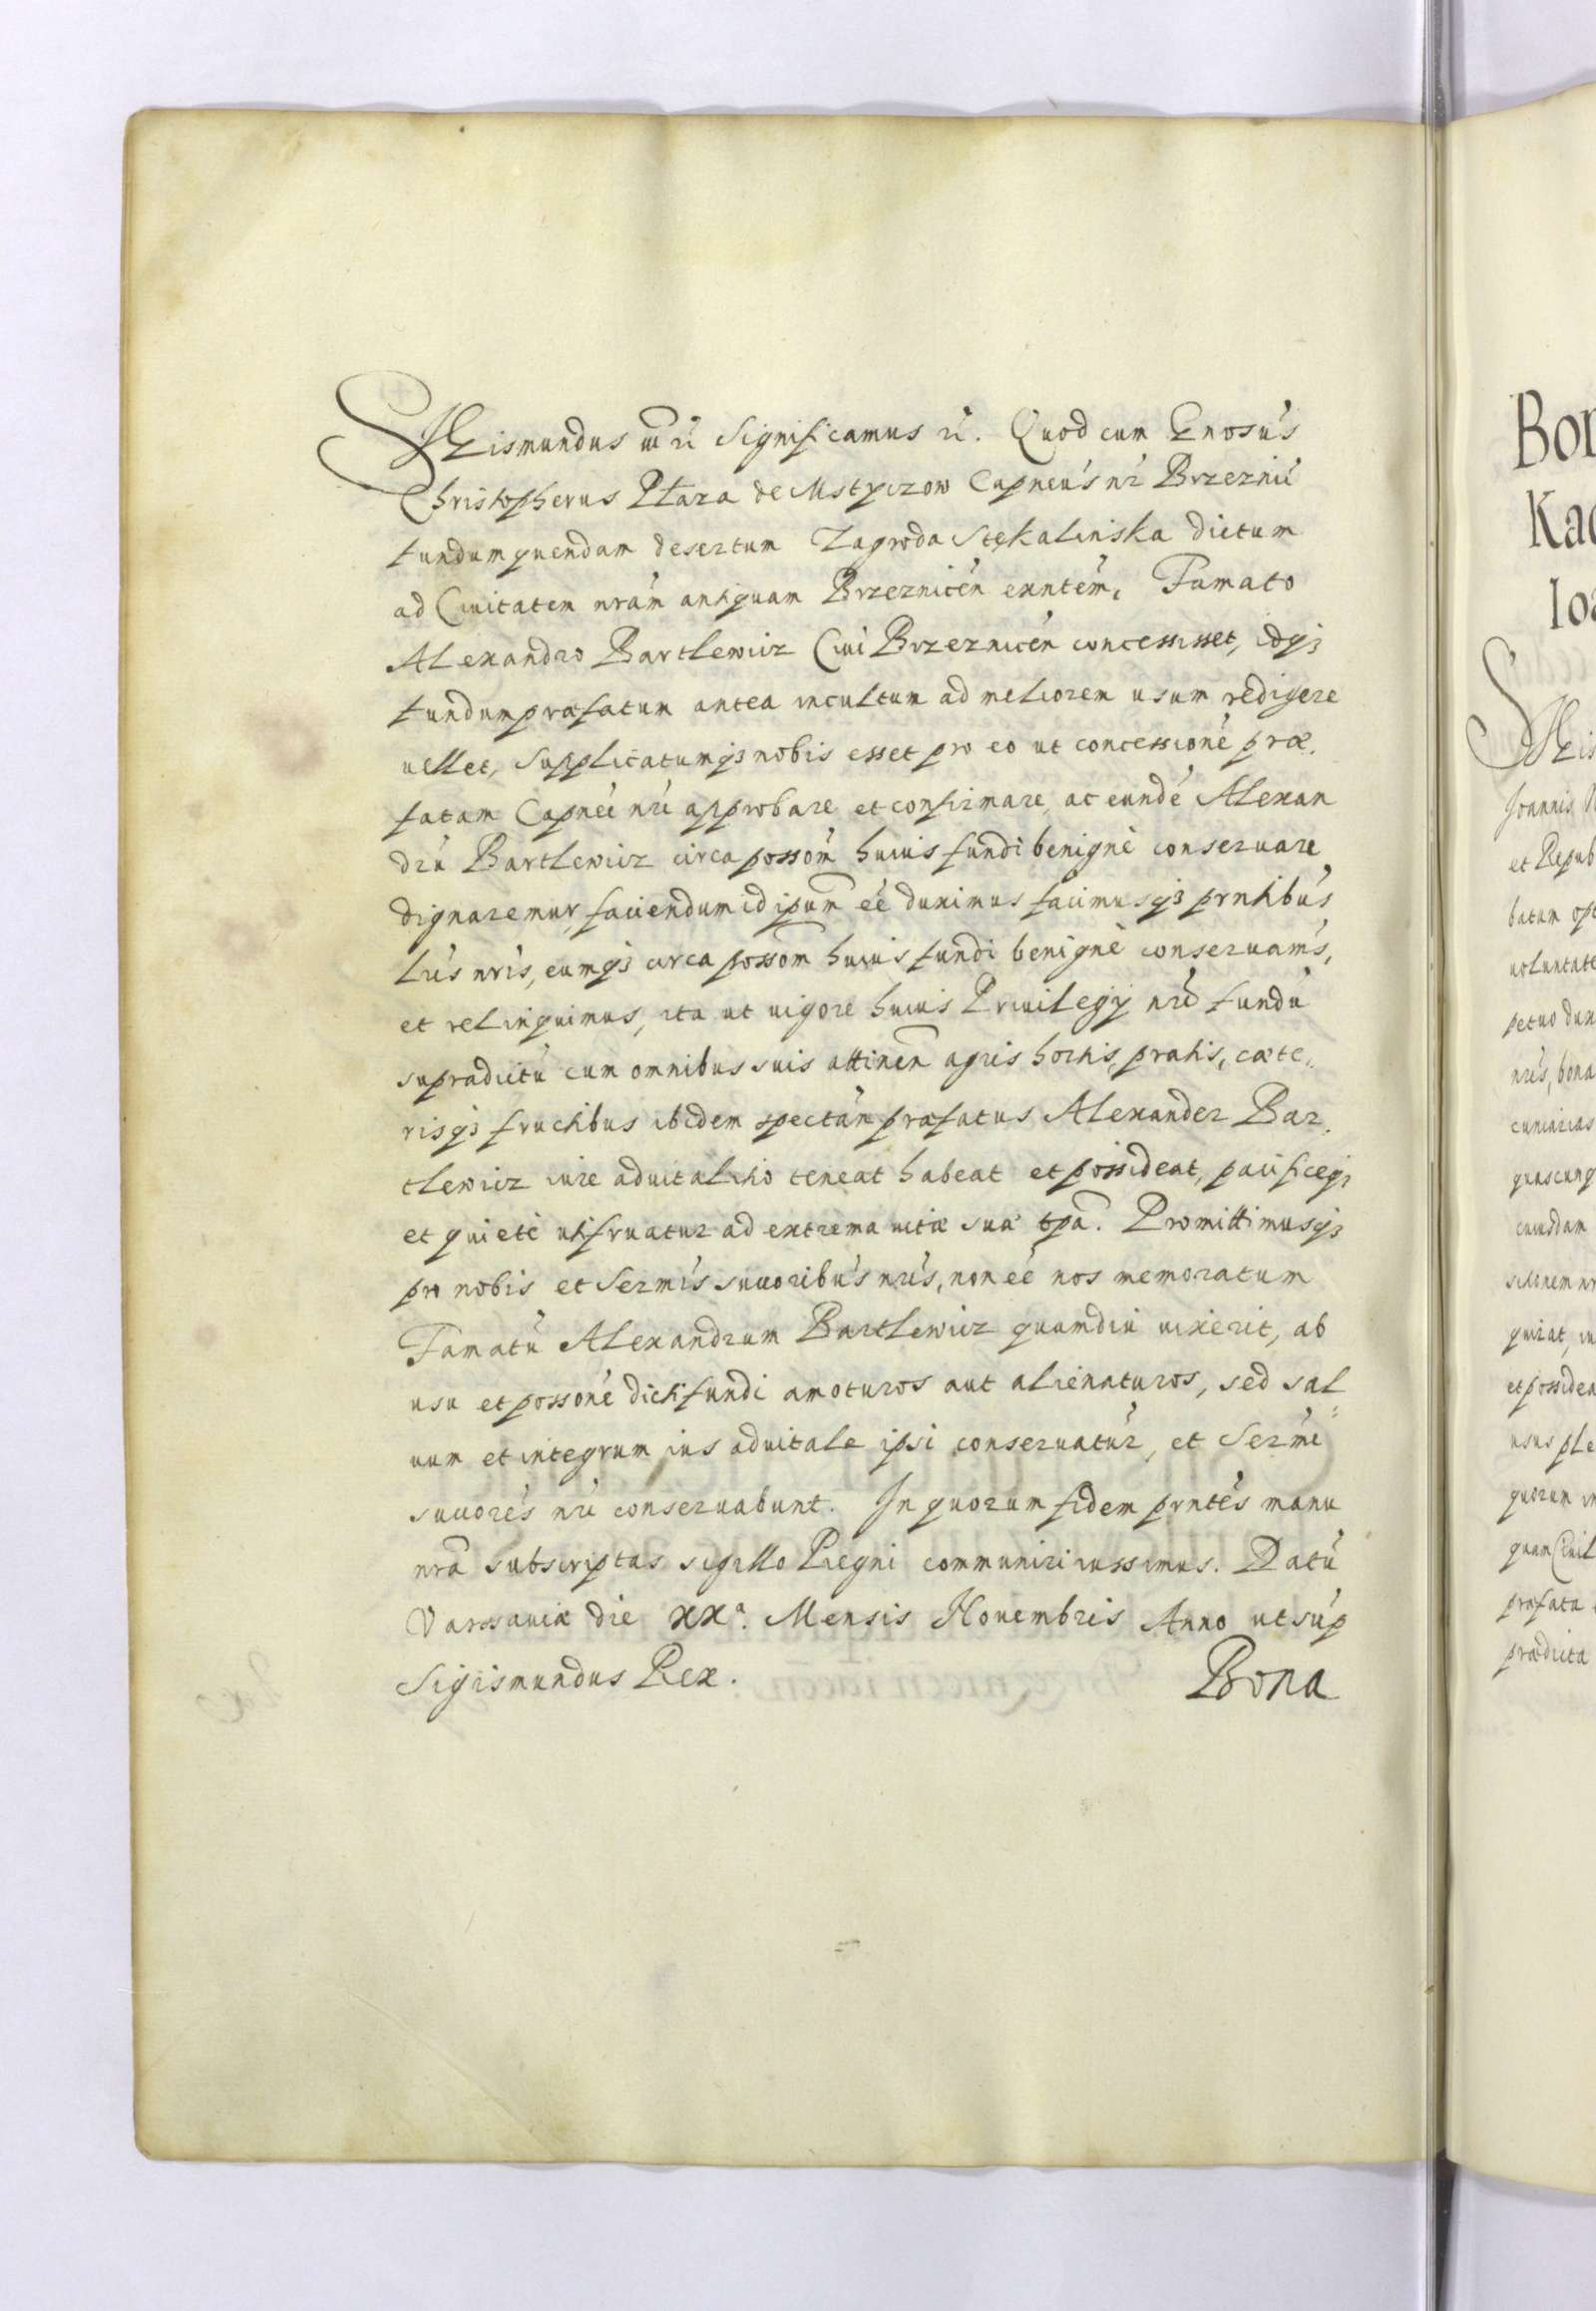 SIGismundus III rć Significamus rć. Quod cum Gnosús
Christophorus Płaza de Mstyczow Capneús nŕ Brzeznić
fundum quendam desertum Zagroda Stękalinska dictum
ad Ciuitatem nrám antiquam Brzeznicén exntém, Famato
Alexandro Bartlewicz Ciui Brzeznicén concessisset, idq3
fundum præfatum antea incultum ad meliorem usum redigere
uellet, Supplicatumq3 nobis esset pro eo ut concessioné præ.
fatam Capnei nŕi approbare et confirmare, ac eundé Alexan
drú Bartlewicz circa possoḿ huius fundi benigné conseruare
dignaremur, faciendum id ipum̃ eé duximus facimusq3 prntibús
Lrís nrís, eumq3 circa possom̃ huius fundi benigné conseruamús,
et relinquimus, ita ut uigore huius Priuilegij nrí fundú
supradictú cum omnibus suis attineñ agris hortis, pratis, cæte„
risq3 fructibus ibidem spectáń præfatus Alexander Bar.
tlewicz iure aduitalitio teneat habeat et possideat, pacificeq3
et quieté utifruatur ad extrema uitæ suæ tp̃a. Promittimusq3
pro nobis et Sermís succoribús nrís, non eé nos memoratum
Famatú Alexandrum Bartlewicz quamdiu uixerit, ab
usu et possoné dicti fundi amoturos aut alienaturos, sed sal
uum et integrum ius aduitale ipsi conseruatúr, et Sermí
succorés nŕi conseruabunt. In quorum fidem prntés manu
nrã subscriptas sigillo Regni communiri iussimus. Datú
Varssauiæ die XXª. Mensis Nouembris Anno ut súp
Sigismundus Rex. Bona
Bor
Kac
Ioa
SIGis
Ioannis
et Repub
batam opt
uoluntate
petuo dux
nrís, bona
cuniarias
quascunq
cuiusdam
quirat, in
et possidea
usus ple
quorum in
quam Ciuil
præfata
prædicta